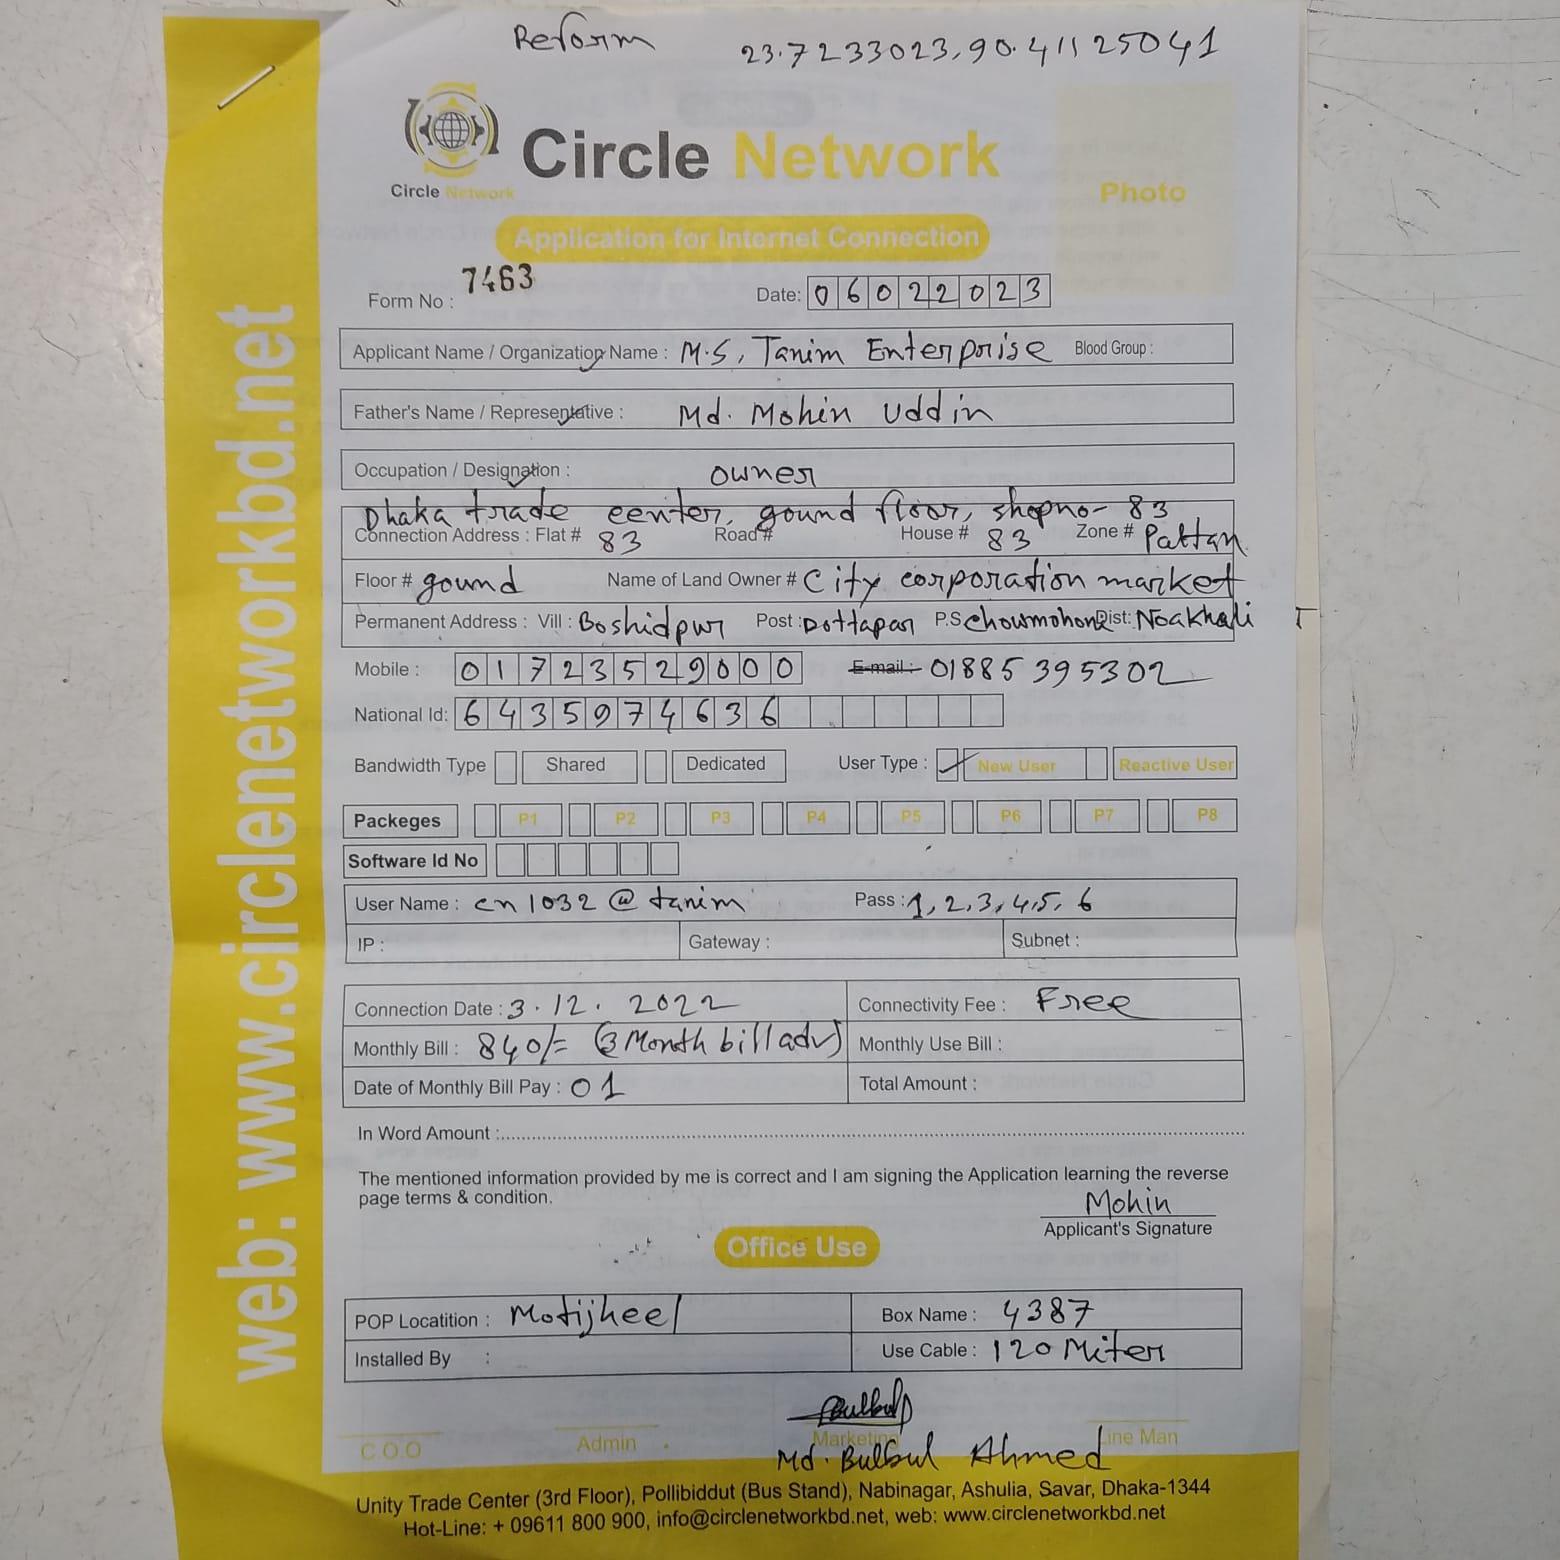 Reform 23.7233023,90.41125041
Circle Network
Circle Network
Photo
Application for Internet Connection
Form No : 7463 Date: 06022023
Applicant Name / Organization Name : M.S, Tanim Enterprise Blood Group :
Father's Name / Representative : Md. Mohin Uddin
Occupation / Designation : owner
Dhaka trade center, gound floor, shopno- 83
Connection Address : Flat # 83 Road # House # 83 Zone # Paltan
Floor # gound Name of Land Owner # City corporation market
Permanent Address : Vill : Boshidpur Post : Dottapar P.S Chowmohoni Dist: Noakhali
Mobile : 01723529000 E-mail : 01885395302
National Id: 6435974636
Bandwidth Type Shared Dedicated User Type : New User Reactive User
Packeges P1 P2 P3 P4 P5 P6 P7 P8
Software Id No
User Name : cn1032@tanim Pass : 1,2,3,4,5,6
IP : Gateway : Subnet :
Connection Date : 3.12.2022 Connectivity Fee : Free
Monthly Bill : 840/= (3 Month bill adv) Monthly Use Bill :
Date of Monthly Bill Pay : 01 Total Amount :
In Word Amount :
The mentioned information provided by me is correct and I am signing the Application learning the reverse
page terms & condition.
Mohin
Applicant's Signature
Office Use
POP Locatition : Motijheel Box Name : 4387
Installed By : Use Cable : 120 Miter
Bulbul
C.O.O Admin Marketing Line Man
Md. Bulbul Ahmed
Unity Trade Center (3rd Floor), Pollibiddut (Bus Stand), Nabinagar, Ashulia, Savar, Dhaka-1344
Hot-Line: + 09611 800 900, info@circlenetworkbd.net, web: www.circlenetworkbd.net
web: www.circlenetworkbd.net